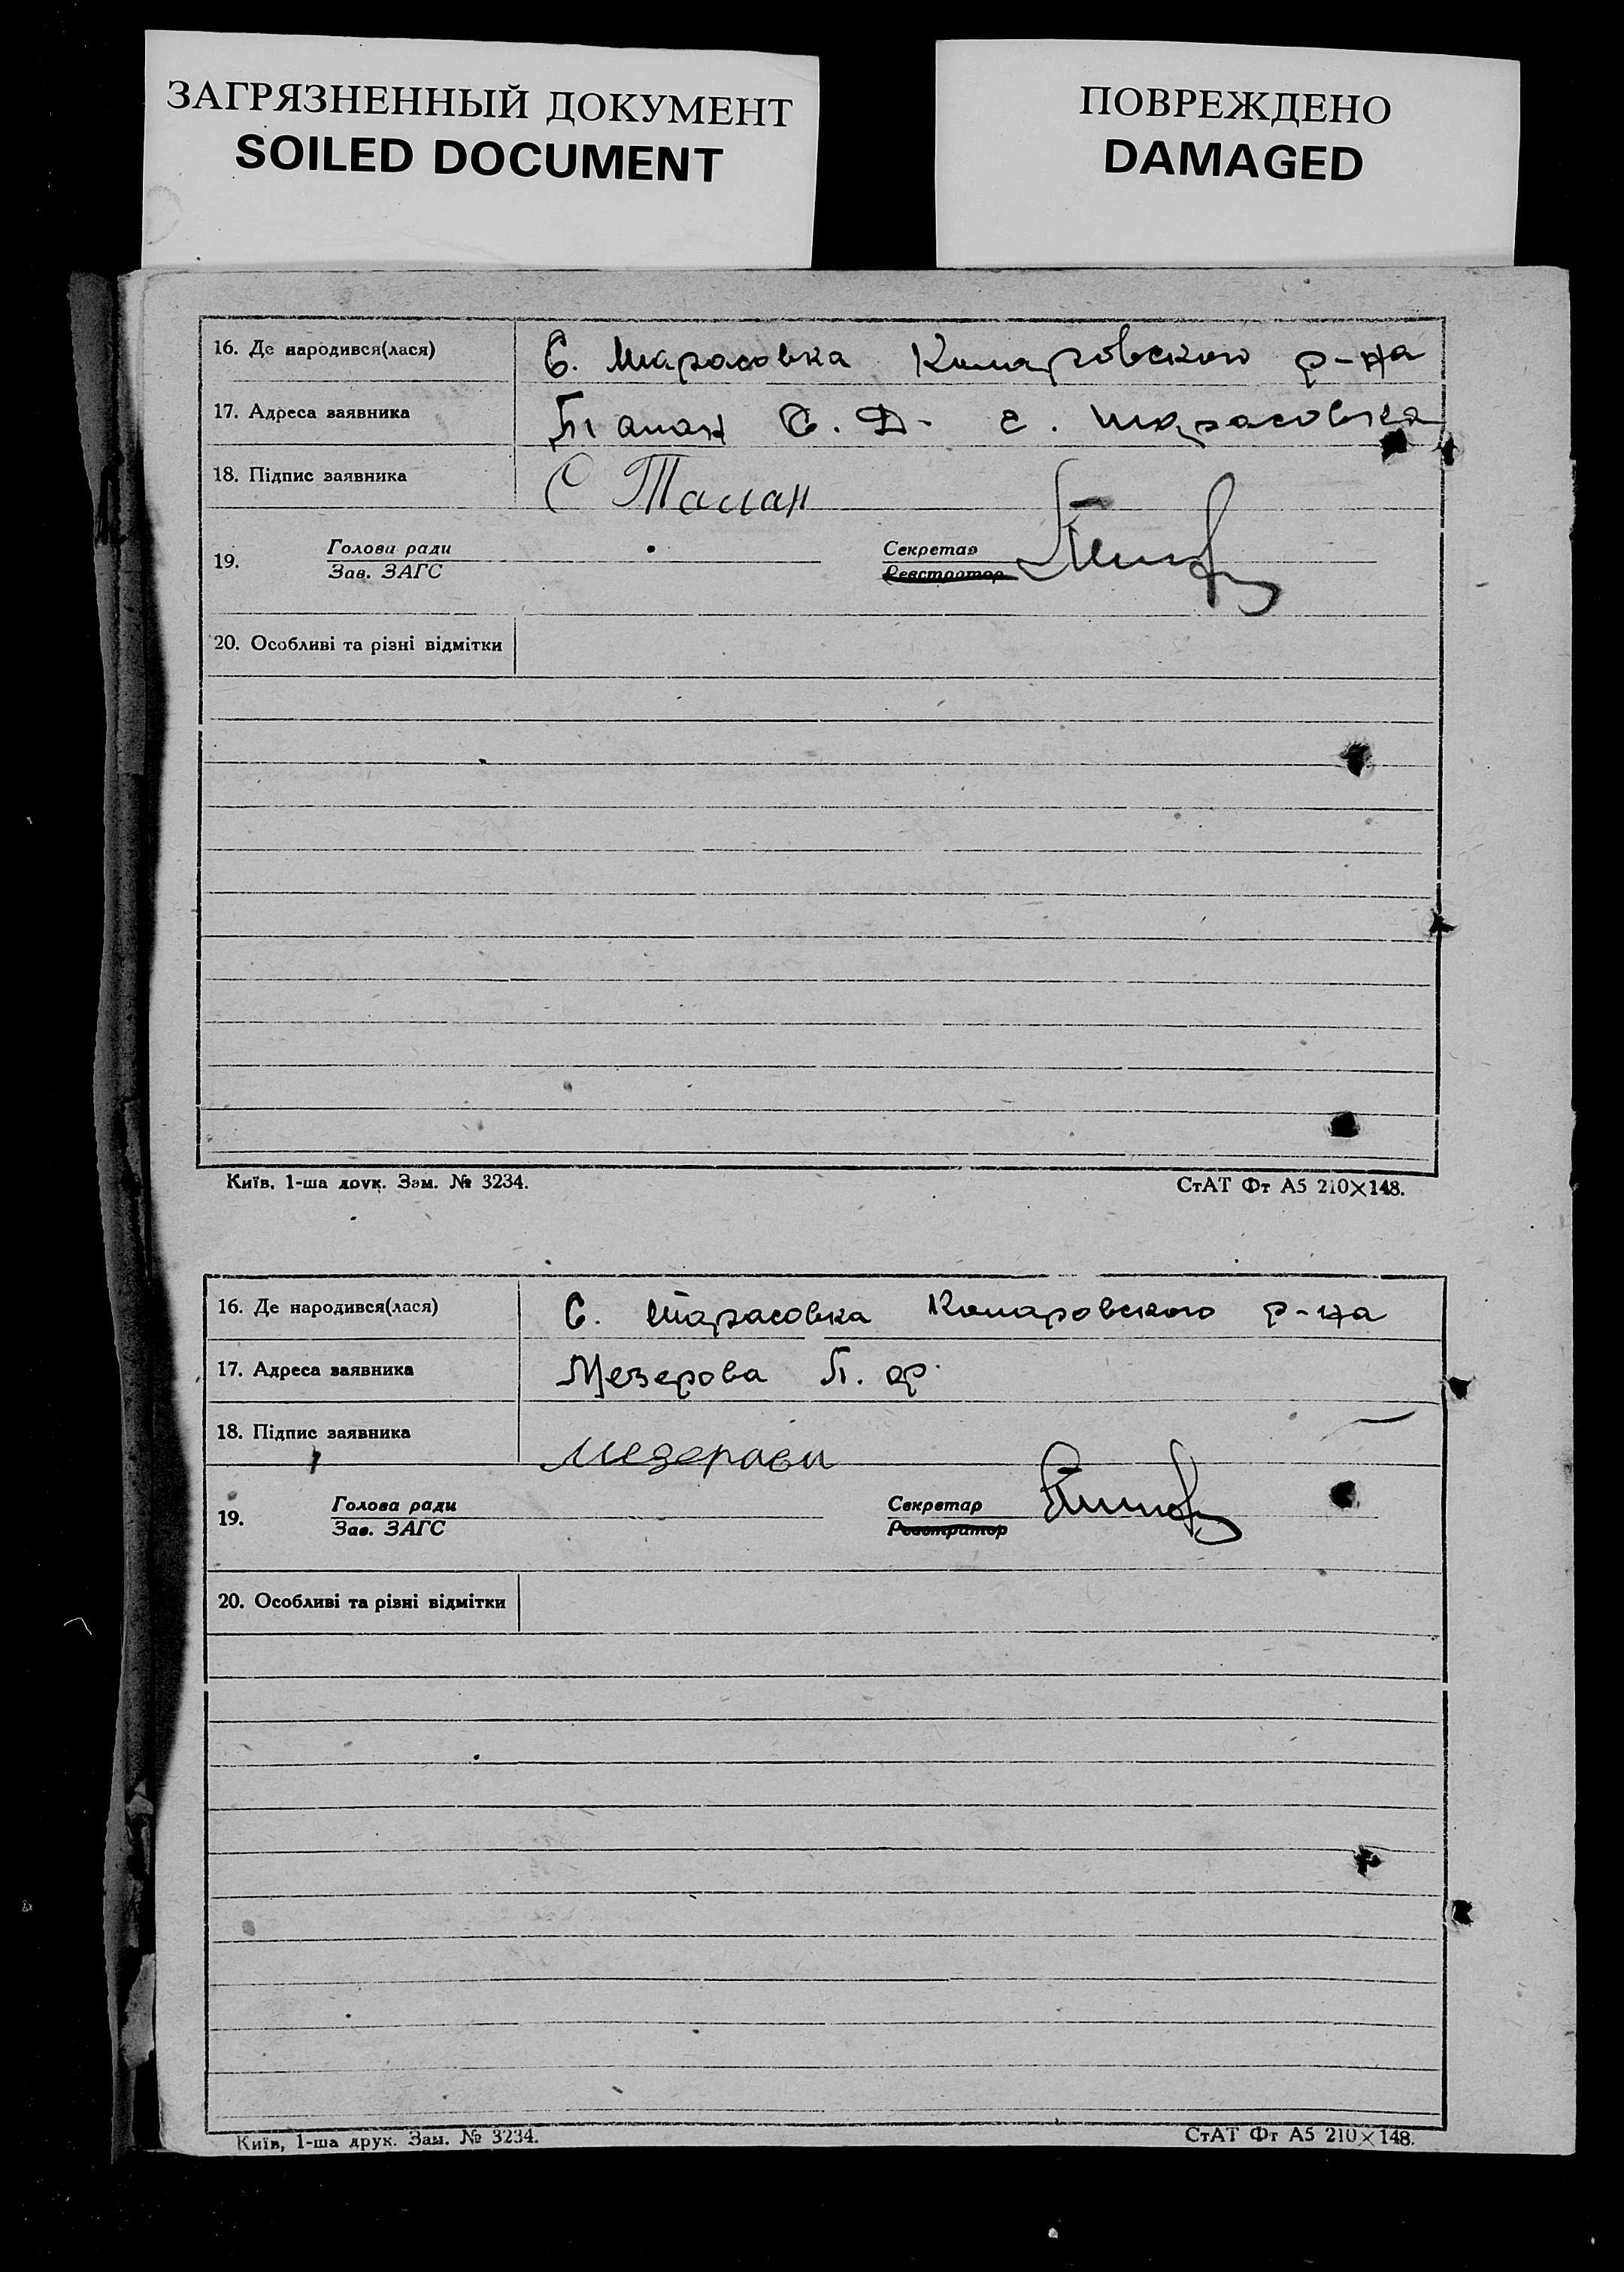 ЗАГРЯЗНЕННЫЙ ДОКУМЕНТ
SOILED DOCUMENT
ПОВРЕЖДЕНО
DAMAGED
16. Де народився(лася) С. Тарасовка Комаровского р-на
17. Адреса заявника Талан С. Д. с. Тарасовка
18. Підпис заявника С Талан
19. Голова ради Секретар
Зав. ЗАГС Реєстратор
20. Особливі та різні відмітки
Київ, 1-ша друк. Зам. № 3234. СтАТ Фт А5 210×148.
16. Де народився(лася) С. Тарасовка Комаровского р-на
17. Адреса заявника Мезерова П. ф.
18. Підпис заявника Мезерова
19. Голова ради Секретар
Зав. ЗАГС Реєстратор
20. Особливі та різні відмітки
Київ, 1-ша друк. Зам. № 3234. СтАТ Фт А5 210×148.